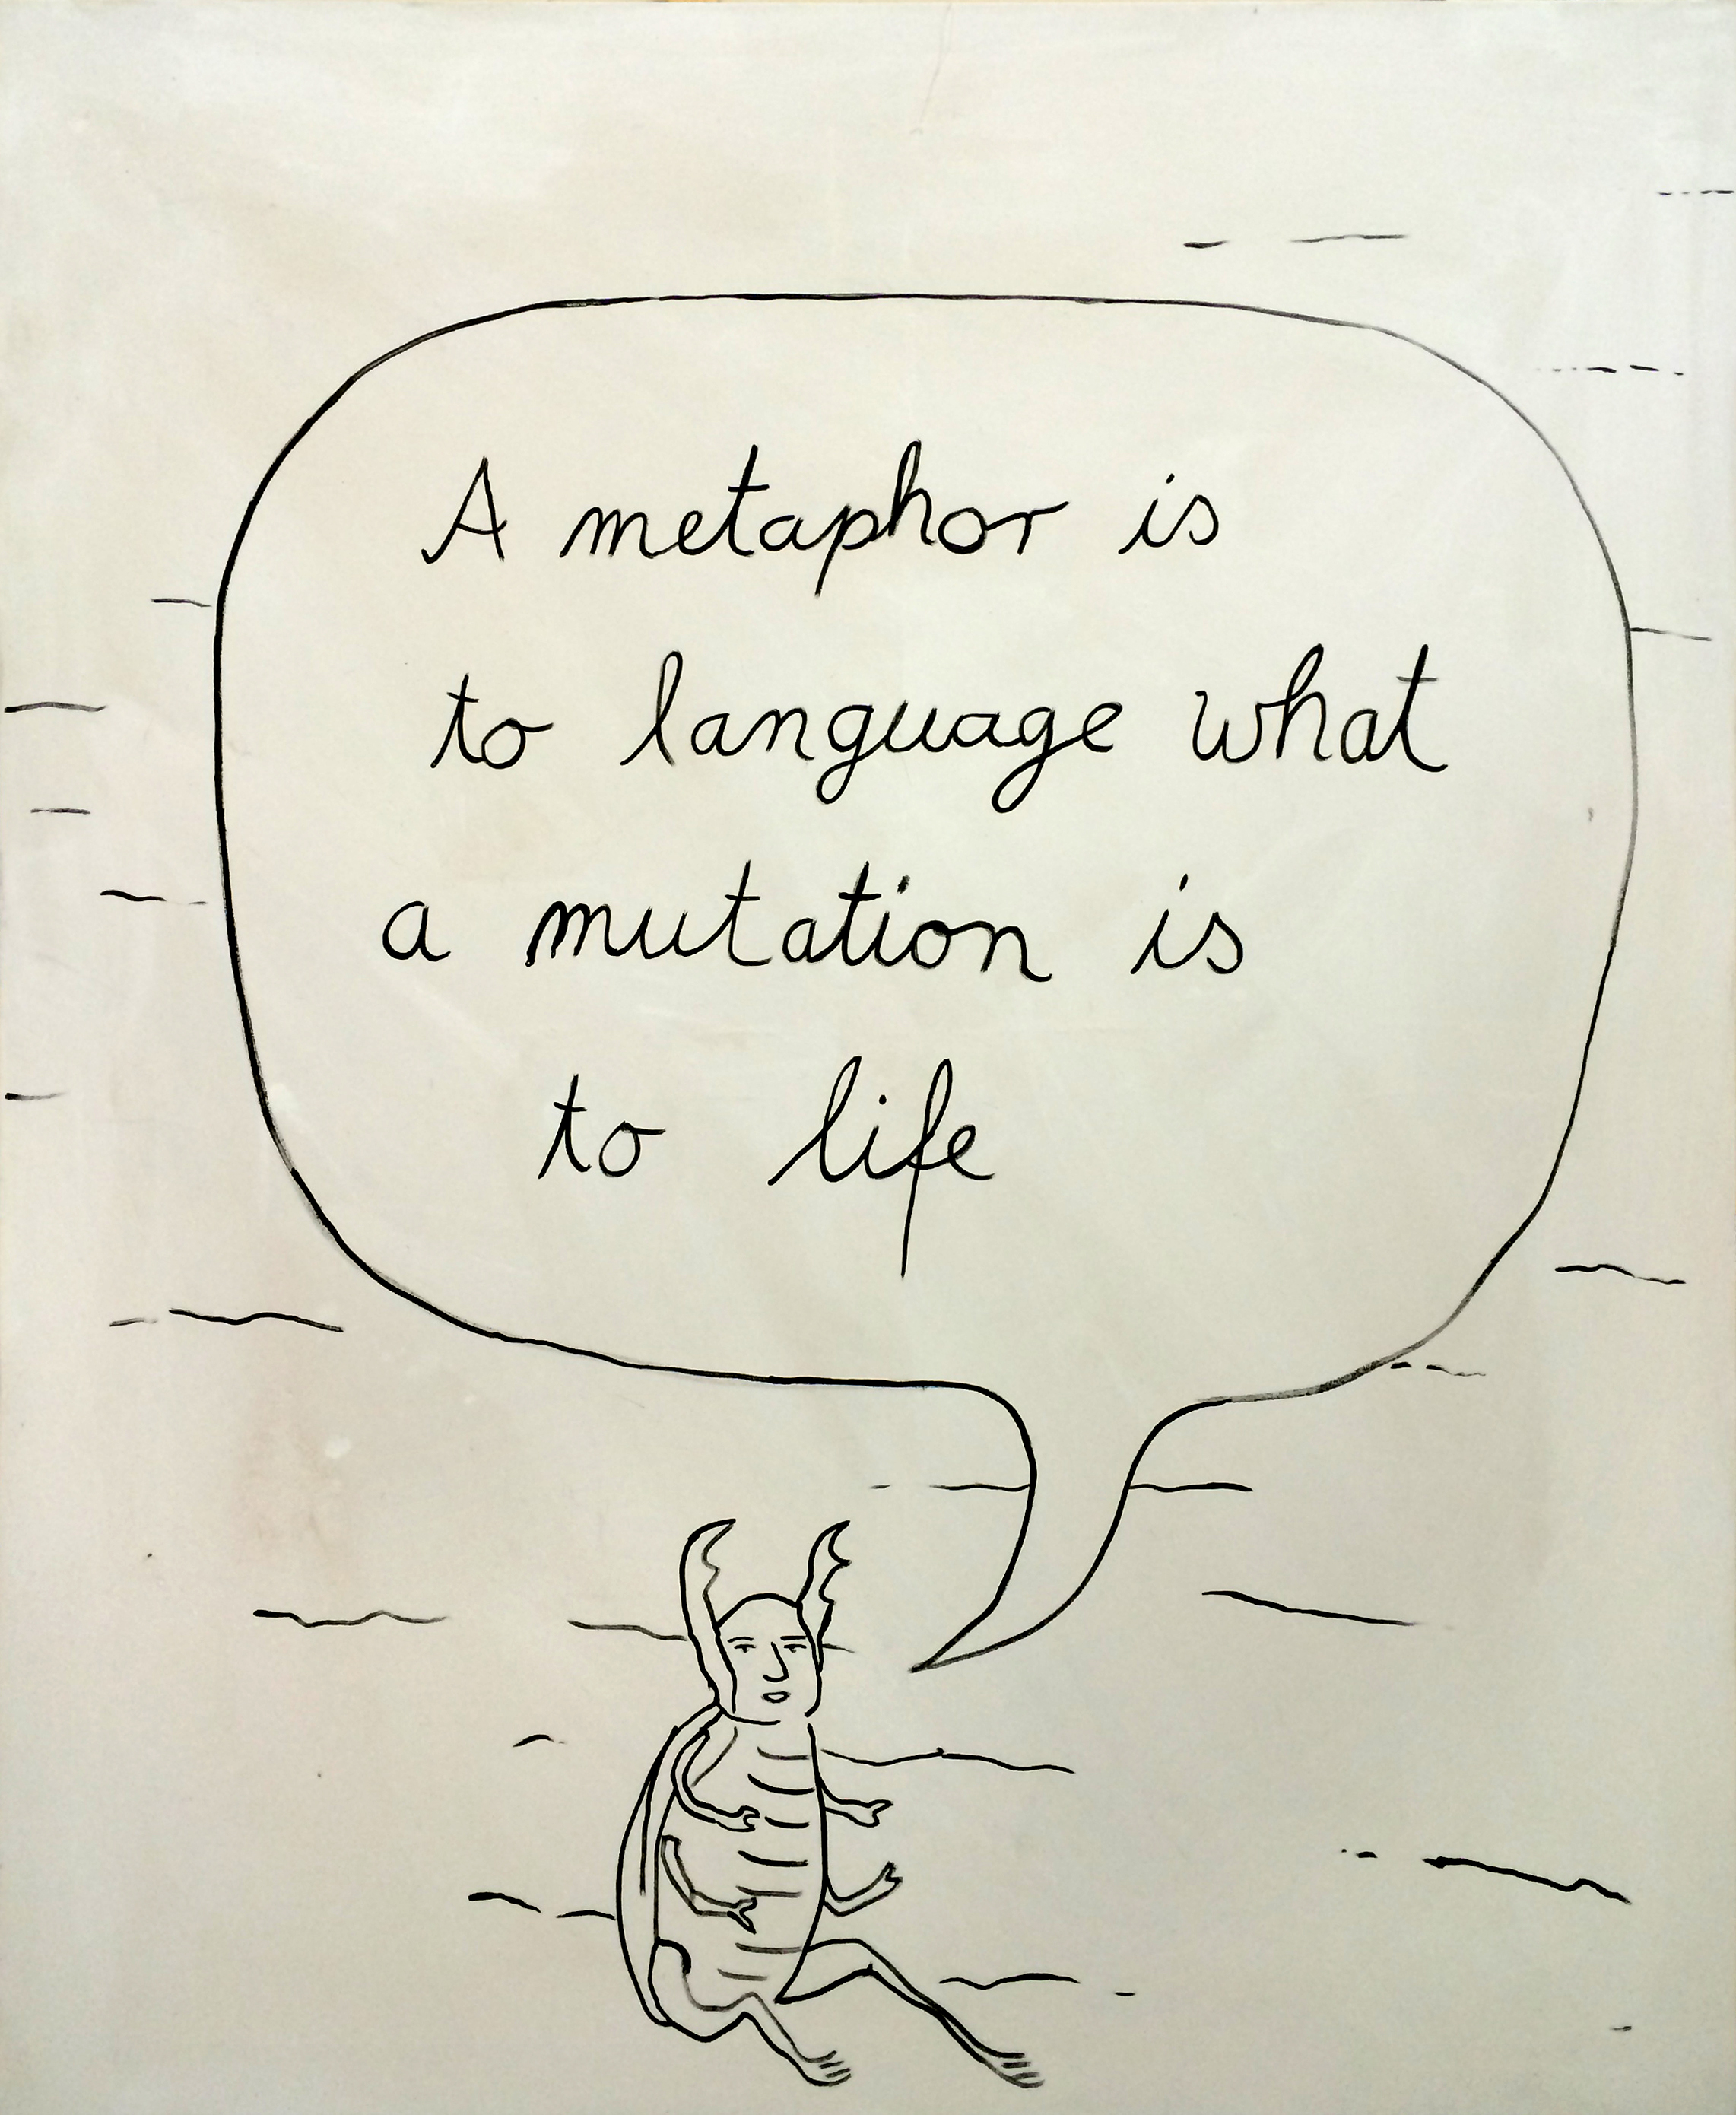 A metaphor is
to language what
a mutation is
to life